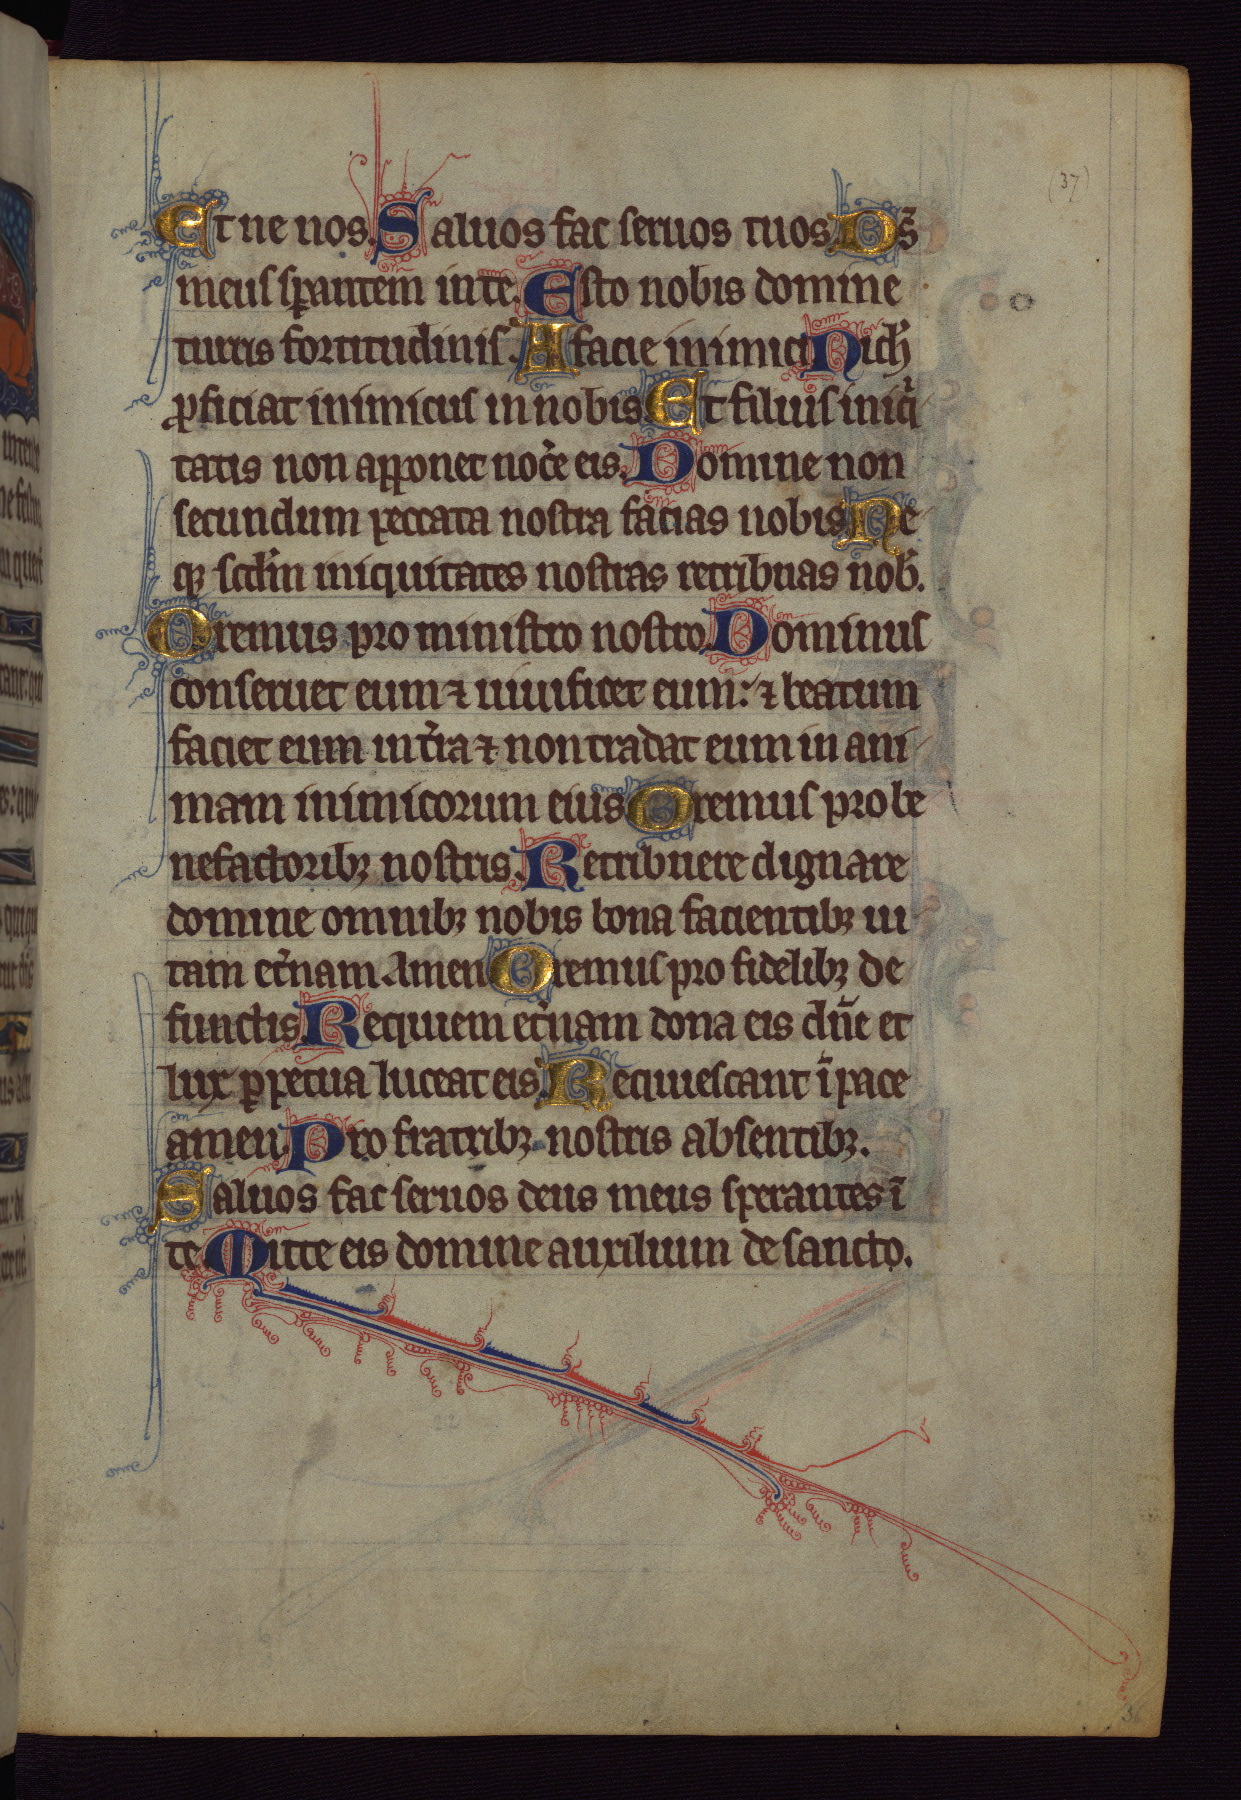 (37)
Et ne nos. Saluos fac seruos tuos. Ds̄
meus sꝑantem in te. Esto nobis domine
turris fortitudinis. A facie inimici Nich̄
ꝓficiat inimicus in nobis Et filius iniq̄
tatis non apponet noc̄e eis. Domine non
secundum peccata nostra facias nobis Ne
qꝫ scd̄m iniquitates nostras retribuas nob̄.
Oremus pro ministro nostro. Dominus
conseruet eum ⁊ uiuificet eum: ⁊ beatum
faciet eum in t̄ra ⁊ non tradat eum in ani
mam inimicorum eius Oremus pro be
nefactoribꝫ nostris. Retribuere dignare
domine omnibꝫ nobis bona facientibꝫ ui
tam et̄nam. Amen Oremus pro fidelibꝫ de
functis. Requiem et̄nam dona eis dn̄e et
lux ꝑpetua luceat eis. Requiescant ī pace
amen. Pro fratribꝫ nostris absentibꝫ.
Saluos fac seruos deus meus sperantes ī
te Mitte eis domine auxilium de sancto.
36